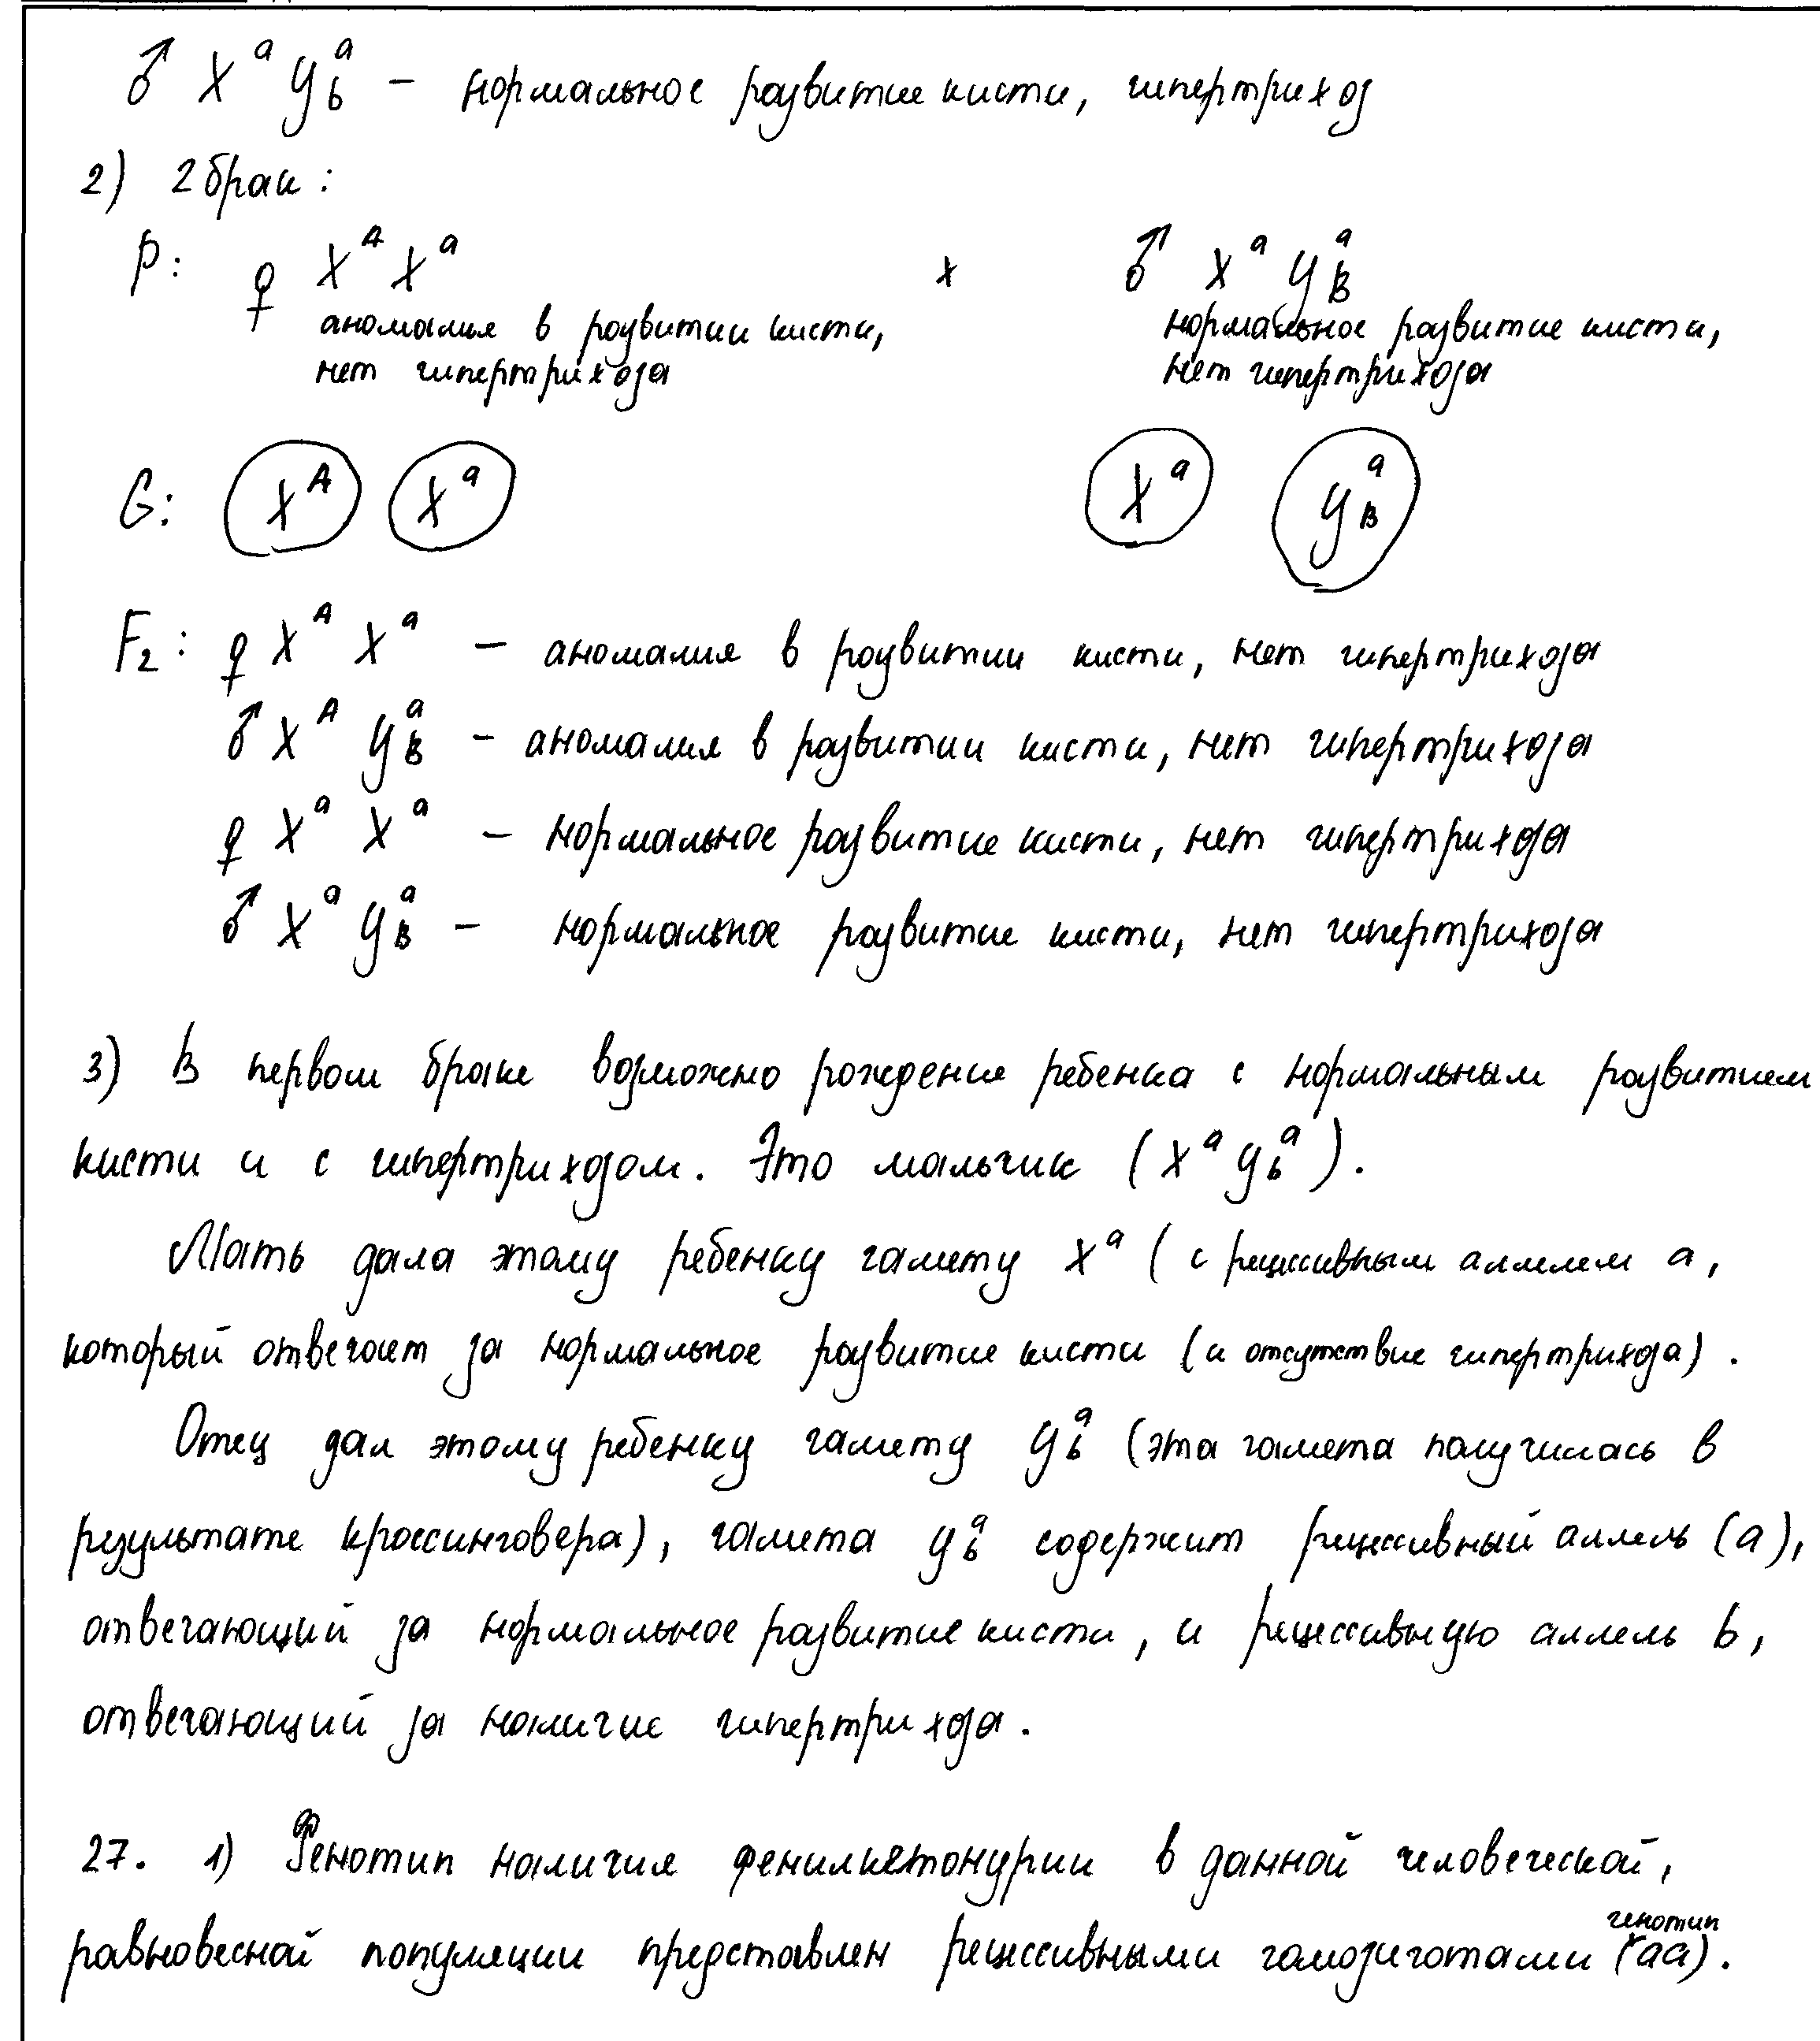 ♂ Xᵃ Yᵇᵃ – нормальное развитие кисти, гипертрихоз
2) 2 брак:
P: ♀ Xᴬ Xᵃ × ♂ Xᵃ Y_Bᵃ
аномалия в развитии кисти, нормальное развитие кисти,
нет гипертрихоза нет гипертрихоза
G: Xᴬ Xᵃ Xᵃ Y_Bᵃ
F₂: ♀ Xᴬ Xᵃ – аномалия в развитии кисти, нет гипертрихоза
♂ Xᴬ Y_Bᵃ – аномалия в развитии кисти, нет гипертрихоза
♀ Xᵃ Xᵃ – нормальное развитие кисти, нет гипертрихоза
♂ Xᵃ Y_Bᵃ – нормальное развитие кисти, нет гипертрихоза
3) В первом браке возможно рождение ребенка с нормальным развитием
кисти и с гипертрихозом. Это мальчик (Xᵃ Y_bᵃ).
Мать дала этому ребенку гамету Xᵃ (с рецессивным аллелем a,
который отвечает за нормальное развитие кисти (и отсутствие гипертрихоза).
Отец дал этому ребенку гамету Y_bᵃ (эта гамета получилась в
результате кроссинговера), гамета Y_bᵃ содержит рецессивный аллель (a),
отвечающий за нормальное развитие кисти, и рецессивную аллель b,
отвечающий за наличие гипертрихоза.
27. 1) Фенотип наличия фенилкетонурии в данной человеческой,
равновесной популяции представлен рецессивными гомозиготами (генотип aa).